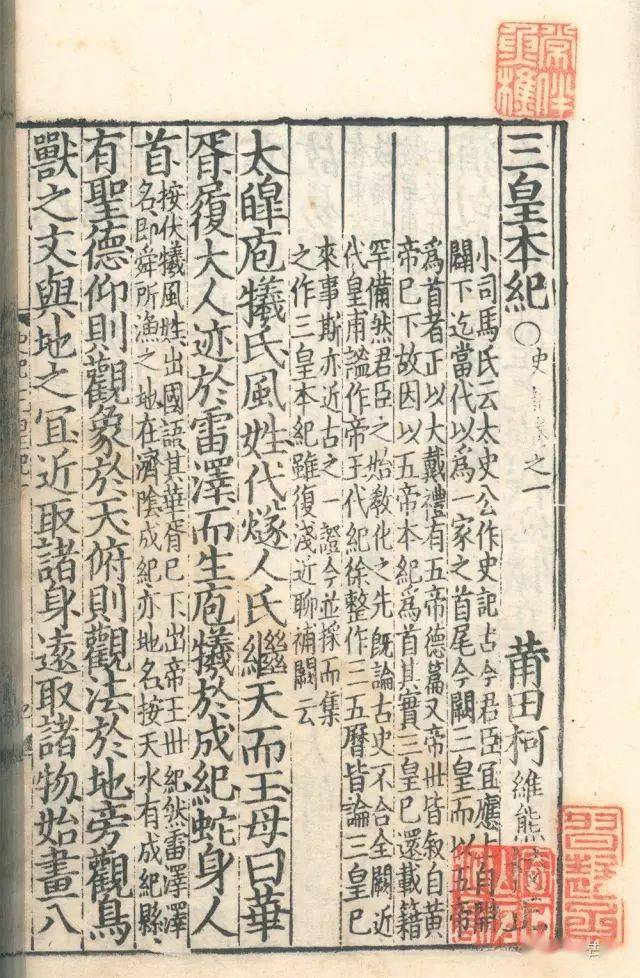 三皇本紀〇史之一 莆田柯維熊正
小司馬氏云太史公作史記古今君臣宜應上自開
闢下迄當代以爲一家之首尾今闕三皇而以五帝
爲首者正以大戴禮有五帝德篇又帝丗皆叙自黄
帝已下故因以五帝本紀爲首其實三皇已還載籍
罕備然君臣之始敎化之先旣論古史不合全闕近
代皇甫謐作帝王代紀徐整作三五曆皆論三皇已
來事斯亦近古之一證今並採而集
之作三皇本紀雖復淺近聊補闕云
太皥庖犧氏風姓代燧人氏繼天而王母曰華
胥履大人迹於雷澤而生庖犧於成紀蛇身人
首
按伏犧風姓出國語其華胥已下出帝王丗紀然雷澤澤
名即舜所漁之地在濟陰成紀亦地名按天水有成紀縣
有聖德仰則觀象於天俯則觀法於地旁觀鳥
獸之文與地之宜近取諸身遠取諸物始畫八